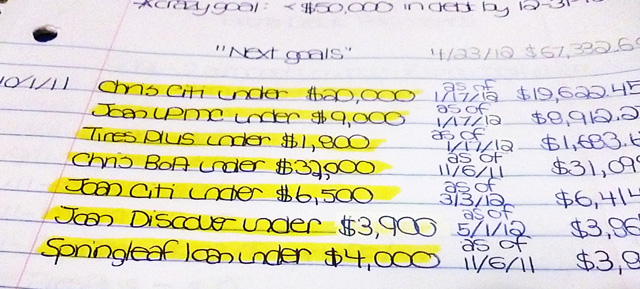 *crazy goal: <$50,000 in debt by 12-31-
"Next goals" 4/23/12 $67,332.6
10/1/11 Chris Citi under $20,000 as of 1/17/12 $19,622.45
Joan UPMC under $9,000 as of 1/17/12 $8,912.2
Tires Plus under $1,800 as of 1/17/12 $1,683.
Chris BoA under as of 11/6/11 $31,09
Joan Citi under $6,500 as of 3/3/12 $6,41
Joan Discover under $3,900 as of 5/1/12 $3,
Springleaf loan under $4,000 as of 11/6/11 $3,9